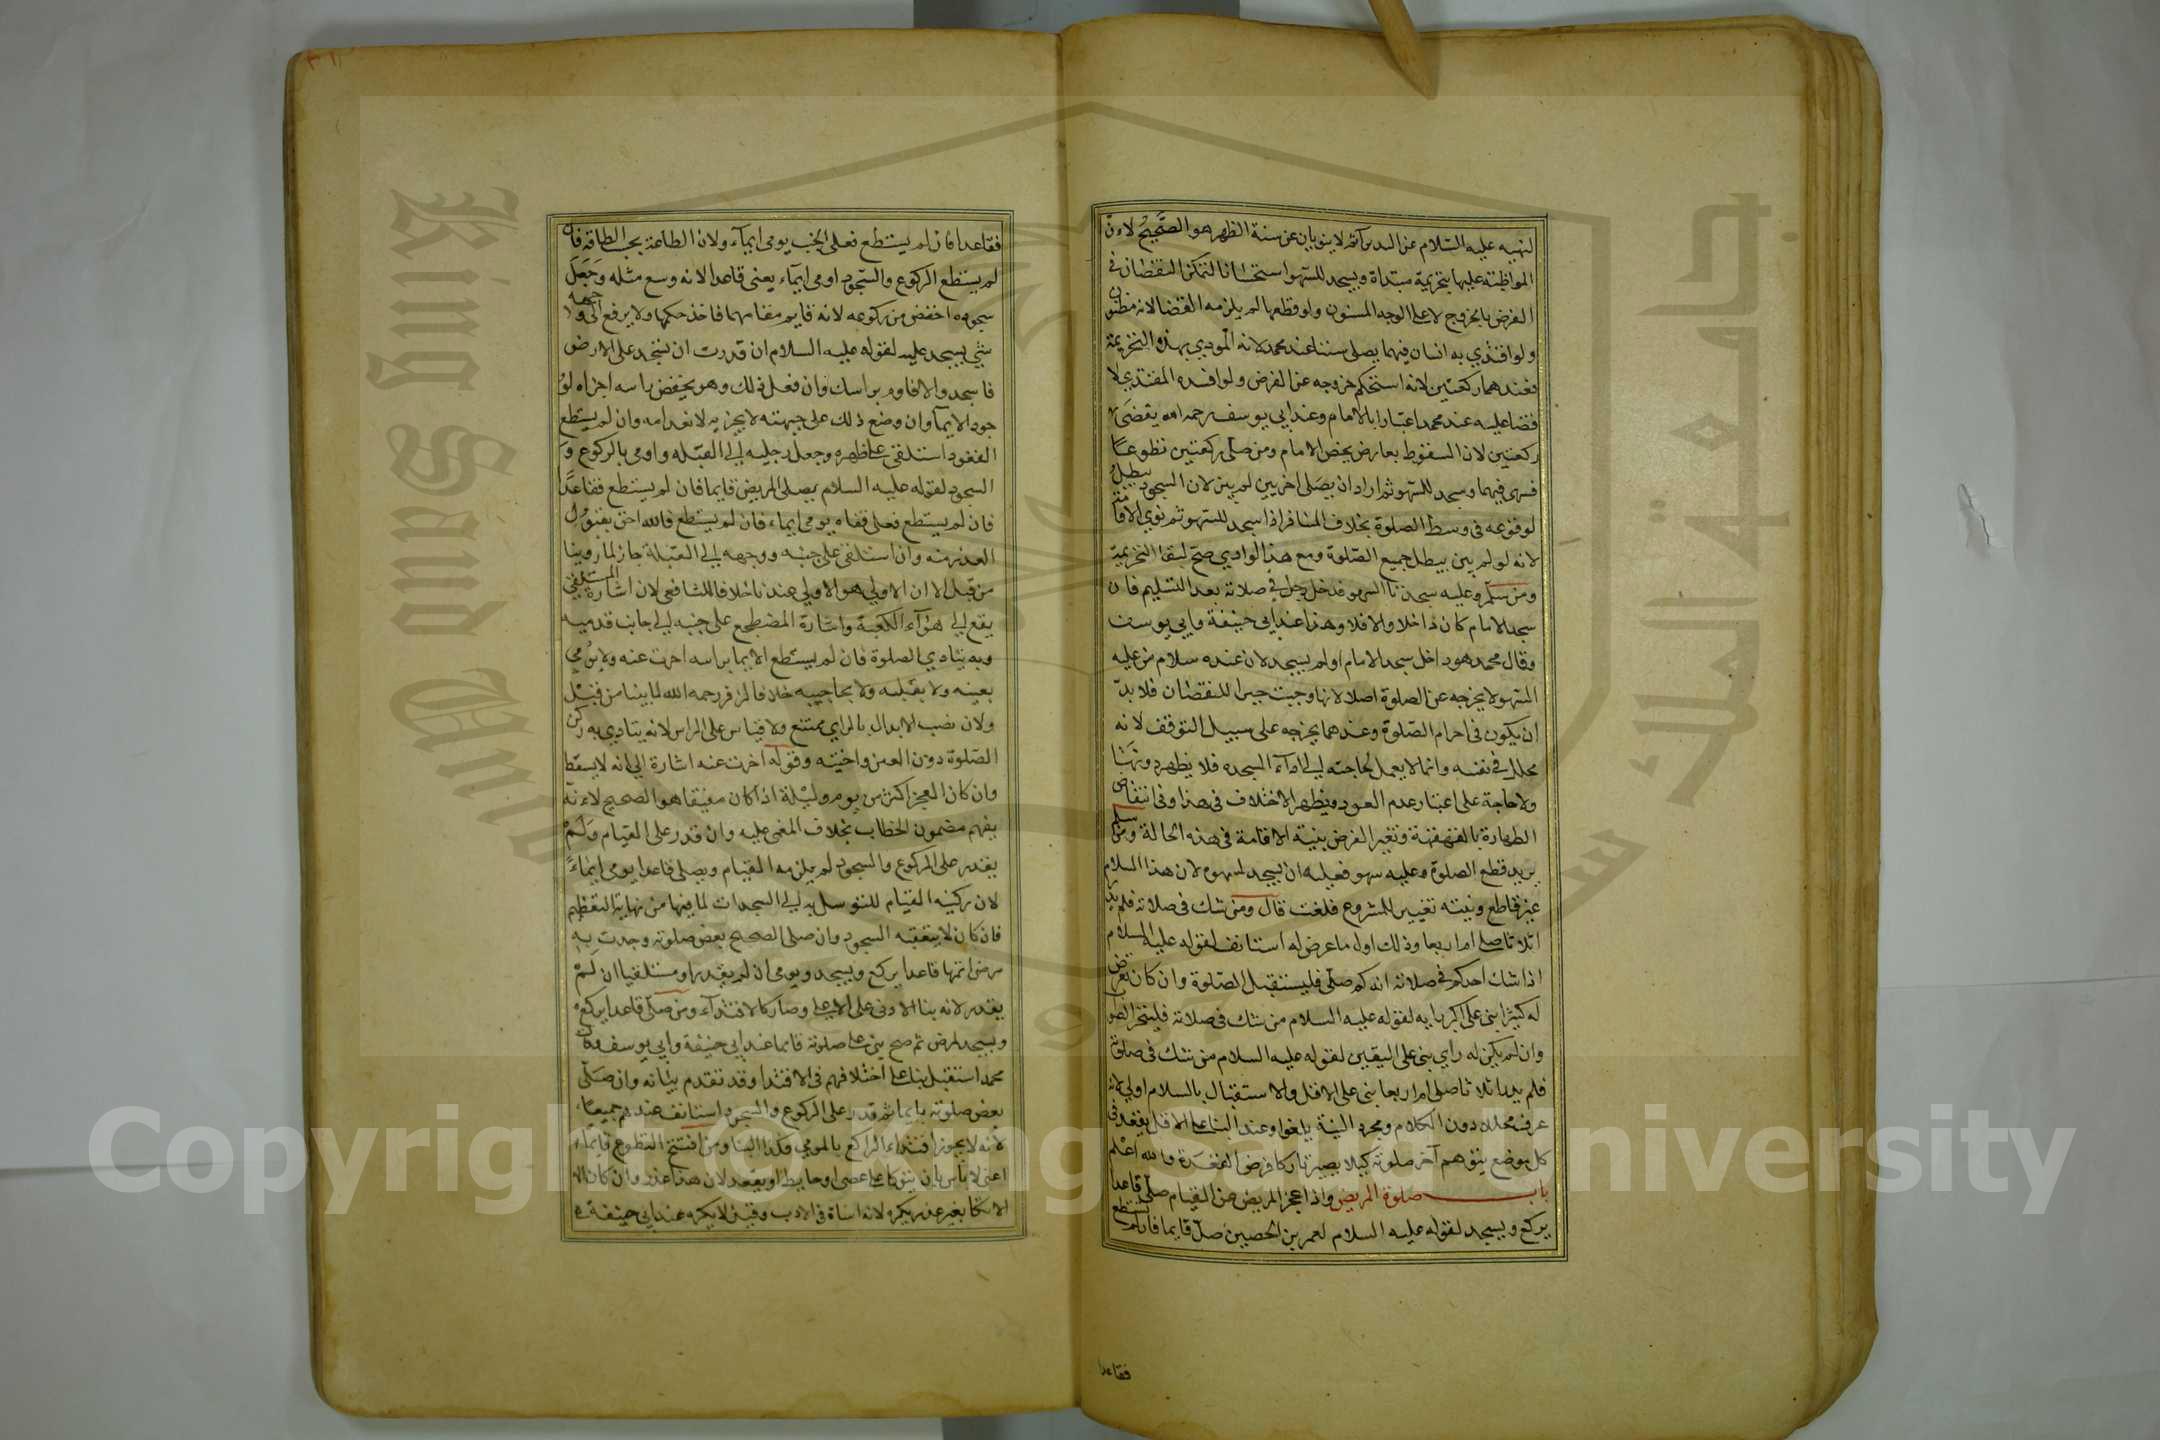 لنهيه عليه السلام عن البتيراء ثم لا ينوبان عن سنة الظهر هو الصحيح لان
المواظبة عليها بتحريمة مبتداة ويسجد للسهو استحسانا لتمكن النقصان في
الفرض بالخروج لا على الوجه المسنون ولو قطعها لم يلزمه القضا لانه مظنون
ولو اقتدي به انسان فيهما يصلي ستا عند محمد لانه المودي بهذه التحريمة
وعندهما ركعتين لانه استحكم خروجه عن الفرض ولو افسده المقتدي لا
قضا عليه عند محمد اعتبارا بالامام وعند ابي يوسف رحمه الله يقضي
ركعتين لان السقوط بعارض يخص الامام ومن صلي ركعتين تطوعا
فسهي فيهما وسجد للسهو ثم اراد ان يصلي اخريين لم يبن لان السجود يبطل
لوقوعه في وسط الصلوة بخلاف المسافر اذا سجد للسهو ثم نوي الاقامة
لانه لو لم يبن يبطل جميع الصلوة ومع هذا لو ادي صح لبقا التحريمة
ومن سلم وعليه سجدتا السهو فدخل رجل في صلاته بعد التسليم فان
سجد الامام كان داخلا والا فلا وهذا عند ابي حنيفة وابي يوسف
وقال محمد هو داخل سجد الامام او لم يسجد لان عنده سلام من عليه
السهو لا يخرجه عن الصلوة اصلا لانها وجبت جبرا للنقصان فلا بد
ان يكون في احرام الصلوة وعندهما يخرجه على سبيل التوقف لانه
محلل في نفسه وانما لا يعمل لحاجته الي اداء السجده فلا يظهر دونها
ولا حاجة على اعتبار عدم العود ويظهر الاختلاف في هذا وفي انتقاض
الطهارة بالقهقهة وتغير الفرض بنية الاقامة في هذه الحالة ومن سلم
يريد قطع الصلوة وعليه سهو فعليه ان يسجد لسهوه لان هذا السلام
غير قاطع ونيته تغيير للمشروع فلغت قال ومن شك في صلاته فلم يدر
اثلاثا صلي ام اربعا وذلك اول ما عرض له استانف لقوله عليه السلام
اذا شك احدكم في صلاته انه كم صلي فليستقبل الصلوة وان كان يعرض
له كثيرا بني على اكبر رايه لقوله عليه السلام من شك في صلاته فليتحر الصواب
وان لم يكن له راي بني على اليقين لقوله عليه السلام من شك في صلوته
فلم يدر اثلاثا صلي ام اربعا بني على الاقل والاستقبال بالسلام اولي لانه
عرف محللا دون الكلام ومجرد النية يلغوا وعند البنا على الاقل يقعد في
كل موضع يتوهم آخر صلوته كيلا يصير تاركا فرض القعدة والله اعلم
باب صلوة المريض واذا عجز المريض عن القيام صلي قاعدا
يركع ويسجد لقوله عليه السلام لعمر بن الحصين صل قايما فان لم تستطع
فقاعدا
فقاعدا فان لم يستطع فعلى الجنب يومي ايماء ولان الطاعة بحسب الطاقة فان
لم يستطع الركوع والسجود اومي ايماء يعني قاعدا لانه وسع مثله وجعل
سجوده اخفض من ركوعه لانه قايم مقامهما فاخذ حكمها ولا يرفع الى وجهه
شي يسجد عليه لقوله عليه السلام ان قدرت ان تسجد على الارض
فاسجد والا فاوم براسك وان فعل ذلك وهو يخفض راسه اجزاه لو
جود الايماء وان وضع ذلك على جبهته لا يجزيه لانعدامه وان لم يستطع
القعود استلقي على ظهره وجعل رجليه الي القبله واومي بالركوع و
السجود لقوله عليه السلام يصلي المريض قايما فان لم يستطع فقاعدا
فان لم يستطع فعلى قفاه يومي ايماء فان لم يستطع فالله احق بقبول
العذر منه وان استلقي على جنبه ووجهه الي القبلة جاز لما روينا
من قبل الا ان الاولي هو الاولي عندنا خلافا للشافعي لان اشارة المستلقي
يقع الي هواء الكعبة واشارة المضطجع على جنبه الي جانب قدميه
وبه يتادي الصلوة فان لم يستطع الايما براسه اخرت عنه ولا يومي
بعينه ولا بقلبه ولا بحاجبيه خلافا لزفر رحمه الله لما بينا من قبل
ولان نصب الابدال بالراي ممتنع ولا قياس على الراس لانه يتادي به ركن
الصلوة دون العين واختيه وقوله اخرت عنه اشارة الي انه لا يسقط
وان كان العجز اكثر من يوم وليلة اذا كان مفيقا هو الصحيح لانه
يفهم مضمون الخطاب بخلاف المغمي عليه وان قدر على القيام ولم
يقدر على الركوع والسجود لم يلزمه القيام ويصلي قاعدا يومي ايماء
لان ركنية القيام للتوسل به الي السجدات لما فيها من نهاية التعظيم
فان كان لا يتعقبه السجود وان صلي الصحيح بعض صلوته وحدث به
مرض اتمها قاعدا يركع ويسجد ويومي ان لم يقدر او مستلقيا ان لم
يقدر لانه بنا الادني على الاعلى وصار كالاقتداء ومن صلي قاعدا يركع
ويسجد لمرض ثم صح بني على صلوته قايما عند ابي حنيفة وابي يوسف وقال
محمد استقبل بنا على اختلافهم في الاقتدا وقد تقدم بيانه وان صلي
بعض صلوته بايما ثم قدر على الركوع والسجود استانف عندهم جميعا
لانه لا يجوز اقتداء الراكع بالمومي فكذا البنا ومن افتتح التطوع قايما ثم
اعيي لا باس بان يتوكا على عصي او حايط او يقعد لان هذا عذر وان كان
الاتكا بغير عذر يكره لانه اساة في الادب وقيل لا يكره عند ابي حنيفة